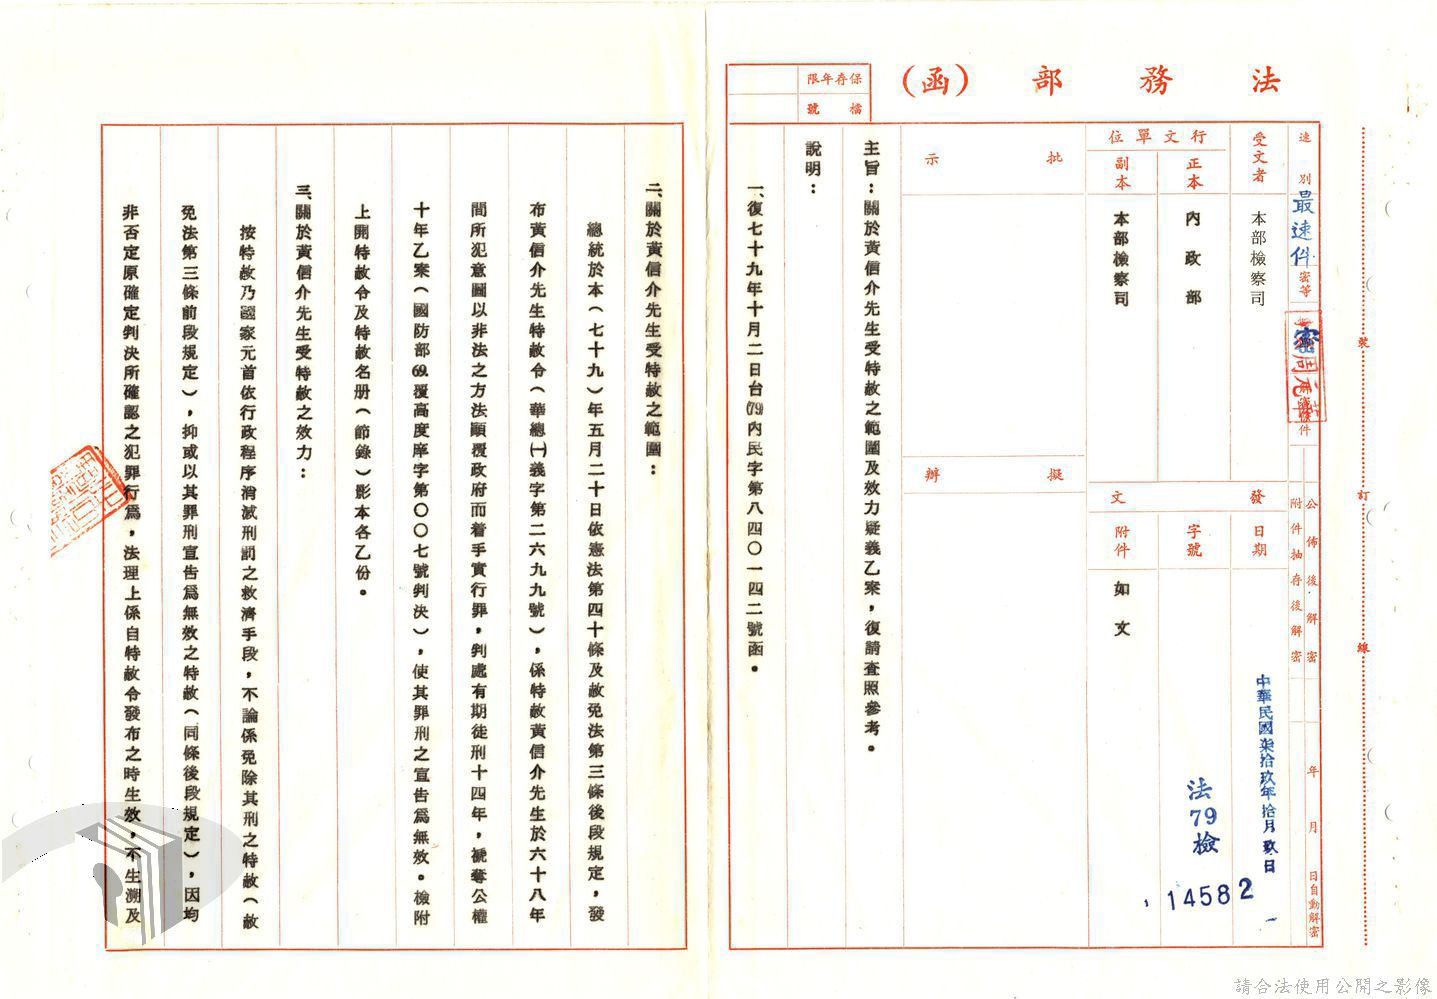 法務部(函)
保存年限
檔號
速別
最速件
密等
密
公佈後解密
附件抽存後解密
年月日自動解密
受文者
本部檢察司
行文單位
正本
內政部
副本
本部檢察司
發文
日期
中華民國柒拾玖年拾月玖日
字號
法79檢
14582
附件
如文
批示
擬辦
主旨：關於黃信介先生受特赦之範圍及效力疑義乙案，復請查照參考。
說明：
一、復七十九年十月二日台(79)內民字第八四〇一四二號函。
二、關於黃信介先生受特赦之範圍：
總統於本（七十九）年五月二十日依憲法第四十條及赦免法第三條後段規定，發
布黃信介先生特赦令（華總㈠義字第二六九九號），係特赦黃信介先生於六十八年
間所犯意圖以非法之方法顛覆政府而着手實行罪，判處有期徒刑十四年，褫奪公權
十年乙案（國防部69.覆高度庠字第〇〇七號判決），使其罪刑之宣告爲無效。檢附
上開特赦令及特赦名册（節錄）影本各乙份。
三、關於黃信介先生受特赦之效力：
按特赦乃國家元首依行政程序消滅刑罰之救濟手段，不論係免除其刑之特赦（赦
免法第三條前段規定），抑或以其罪刑宣告爲無效之特赦（同條後段規定），因均
非否定原確定判決所確認之犯罪行爲，法理上係自特赦令發布之時生效，不生溯及
裝
訂
線
請合法使用公開之影像